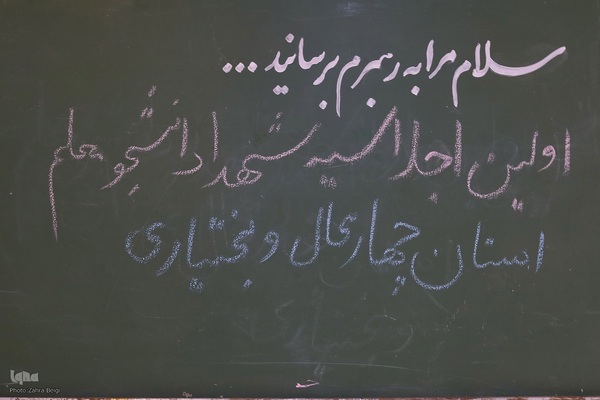 سلام مرا به رهبرم برسانید ...
اولین اجلاسیه شهدا دانشجو معلم
استان چهارمحال و بختیاری
iqna
Photo: Zahra Beigi